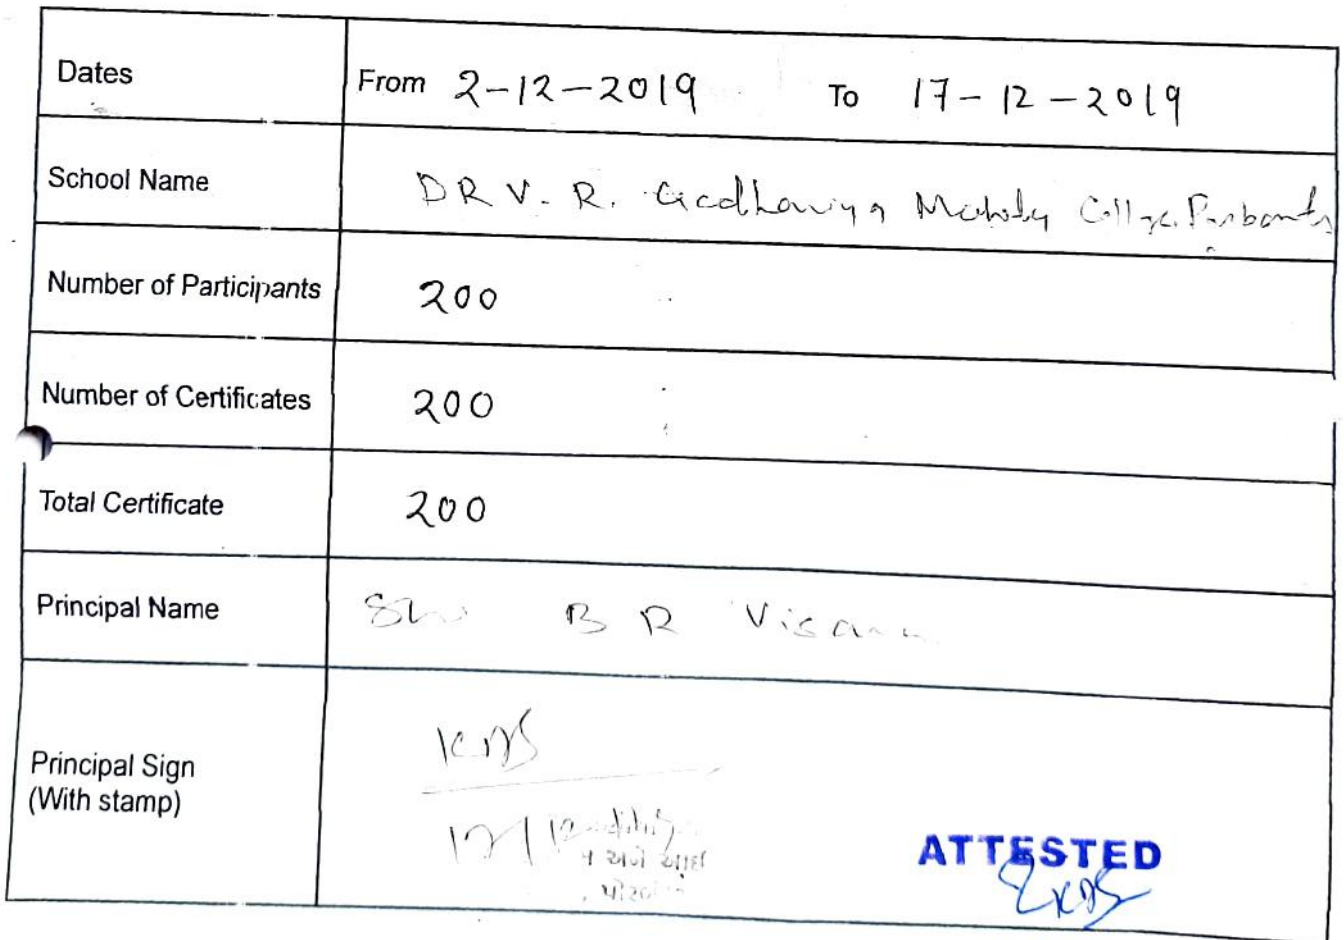 Dates From 2-12-2019 To 17-12-2019
School Name DR V. R. Godhaniya College
Number of Participants 200
Number of Certificates 200
Total Certificate 200
Principal Name B R
Principal Sign
(With stamp)
ATTESTED